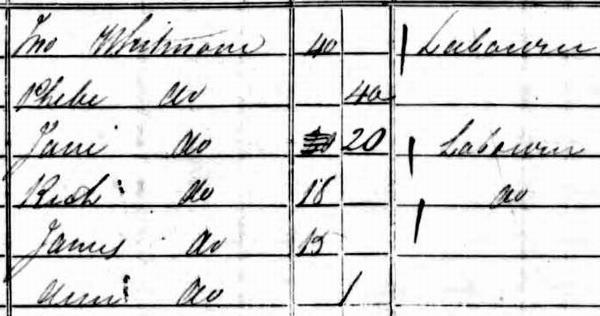 Jno Whitmore 40 Labourer
Phebe do 40
Jane do 20 Labourer
Richd do 18 do
James do 15
Ann do 1